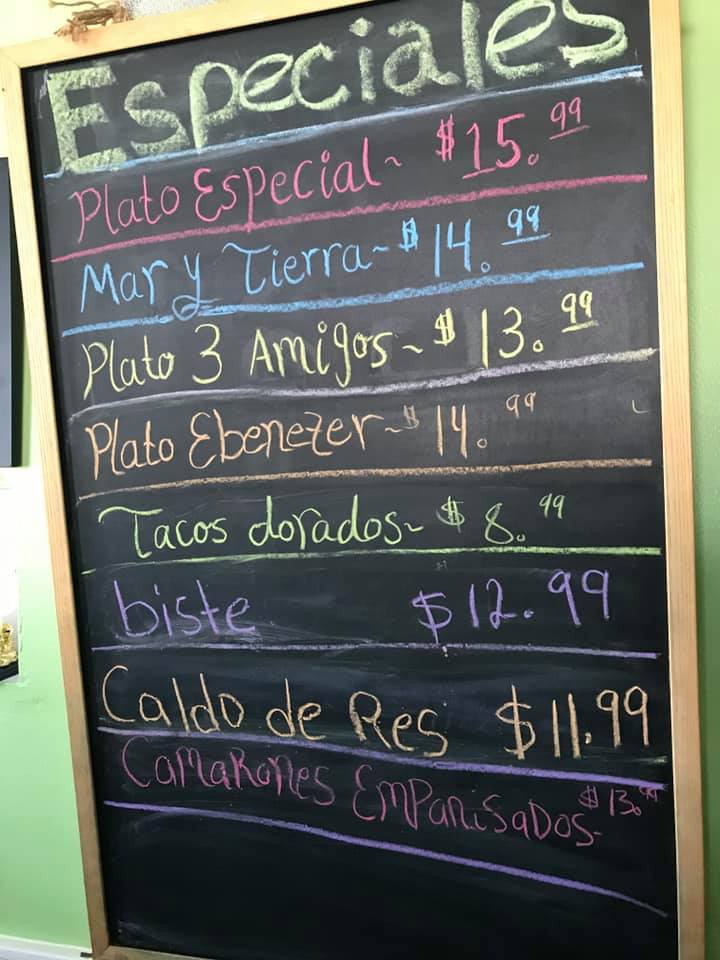 Especiales
Plato Especial~ $15.99
Mar y Tierra~ $14.99
Plato 3 Amigos~ $13.99
Plato Ebenezer~ $14.99
Tacos dorados~ $8.99
biste $12.99
Caldo de Res $11.99
Camarones Empanisados- $13.99